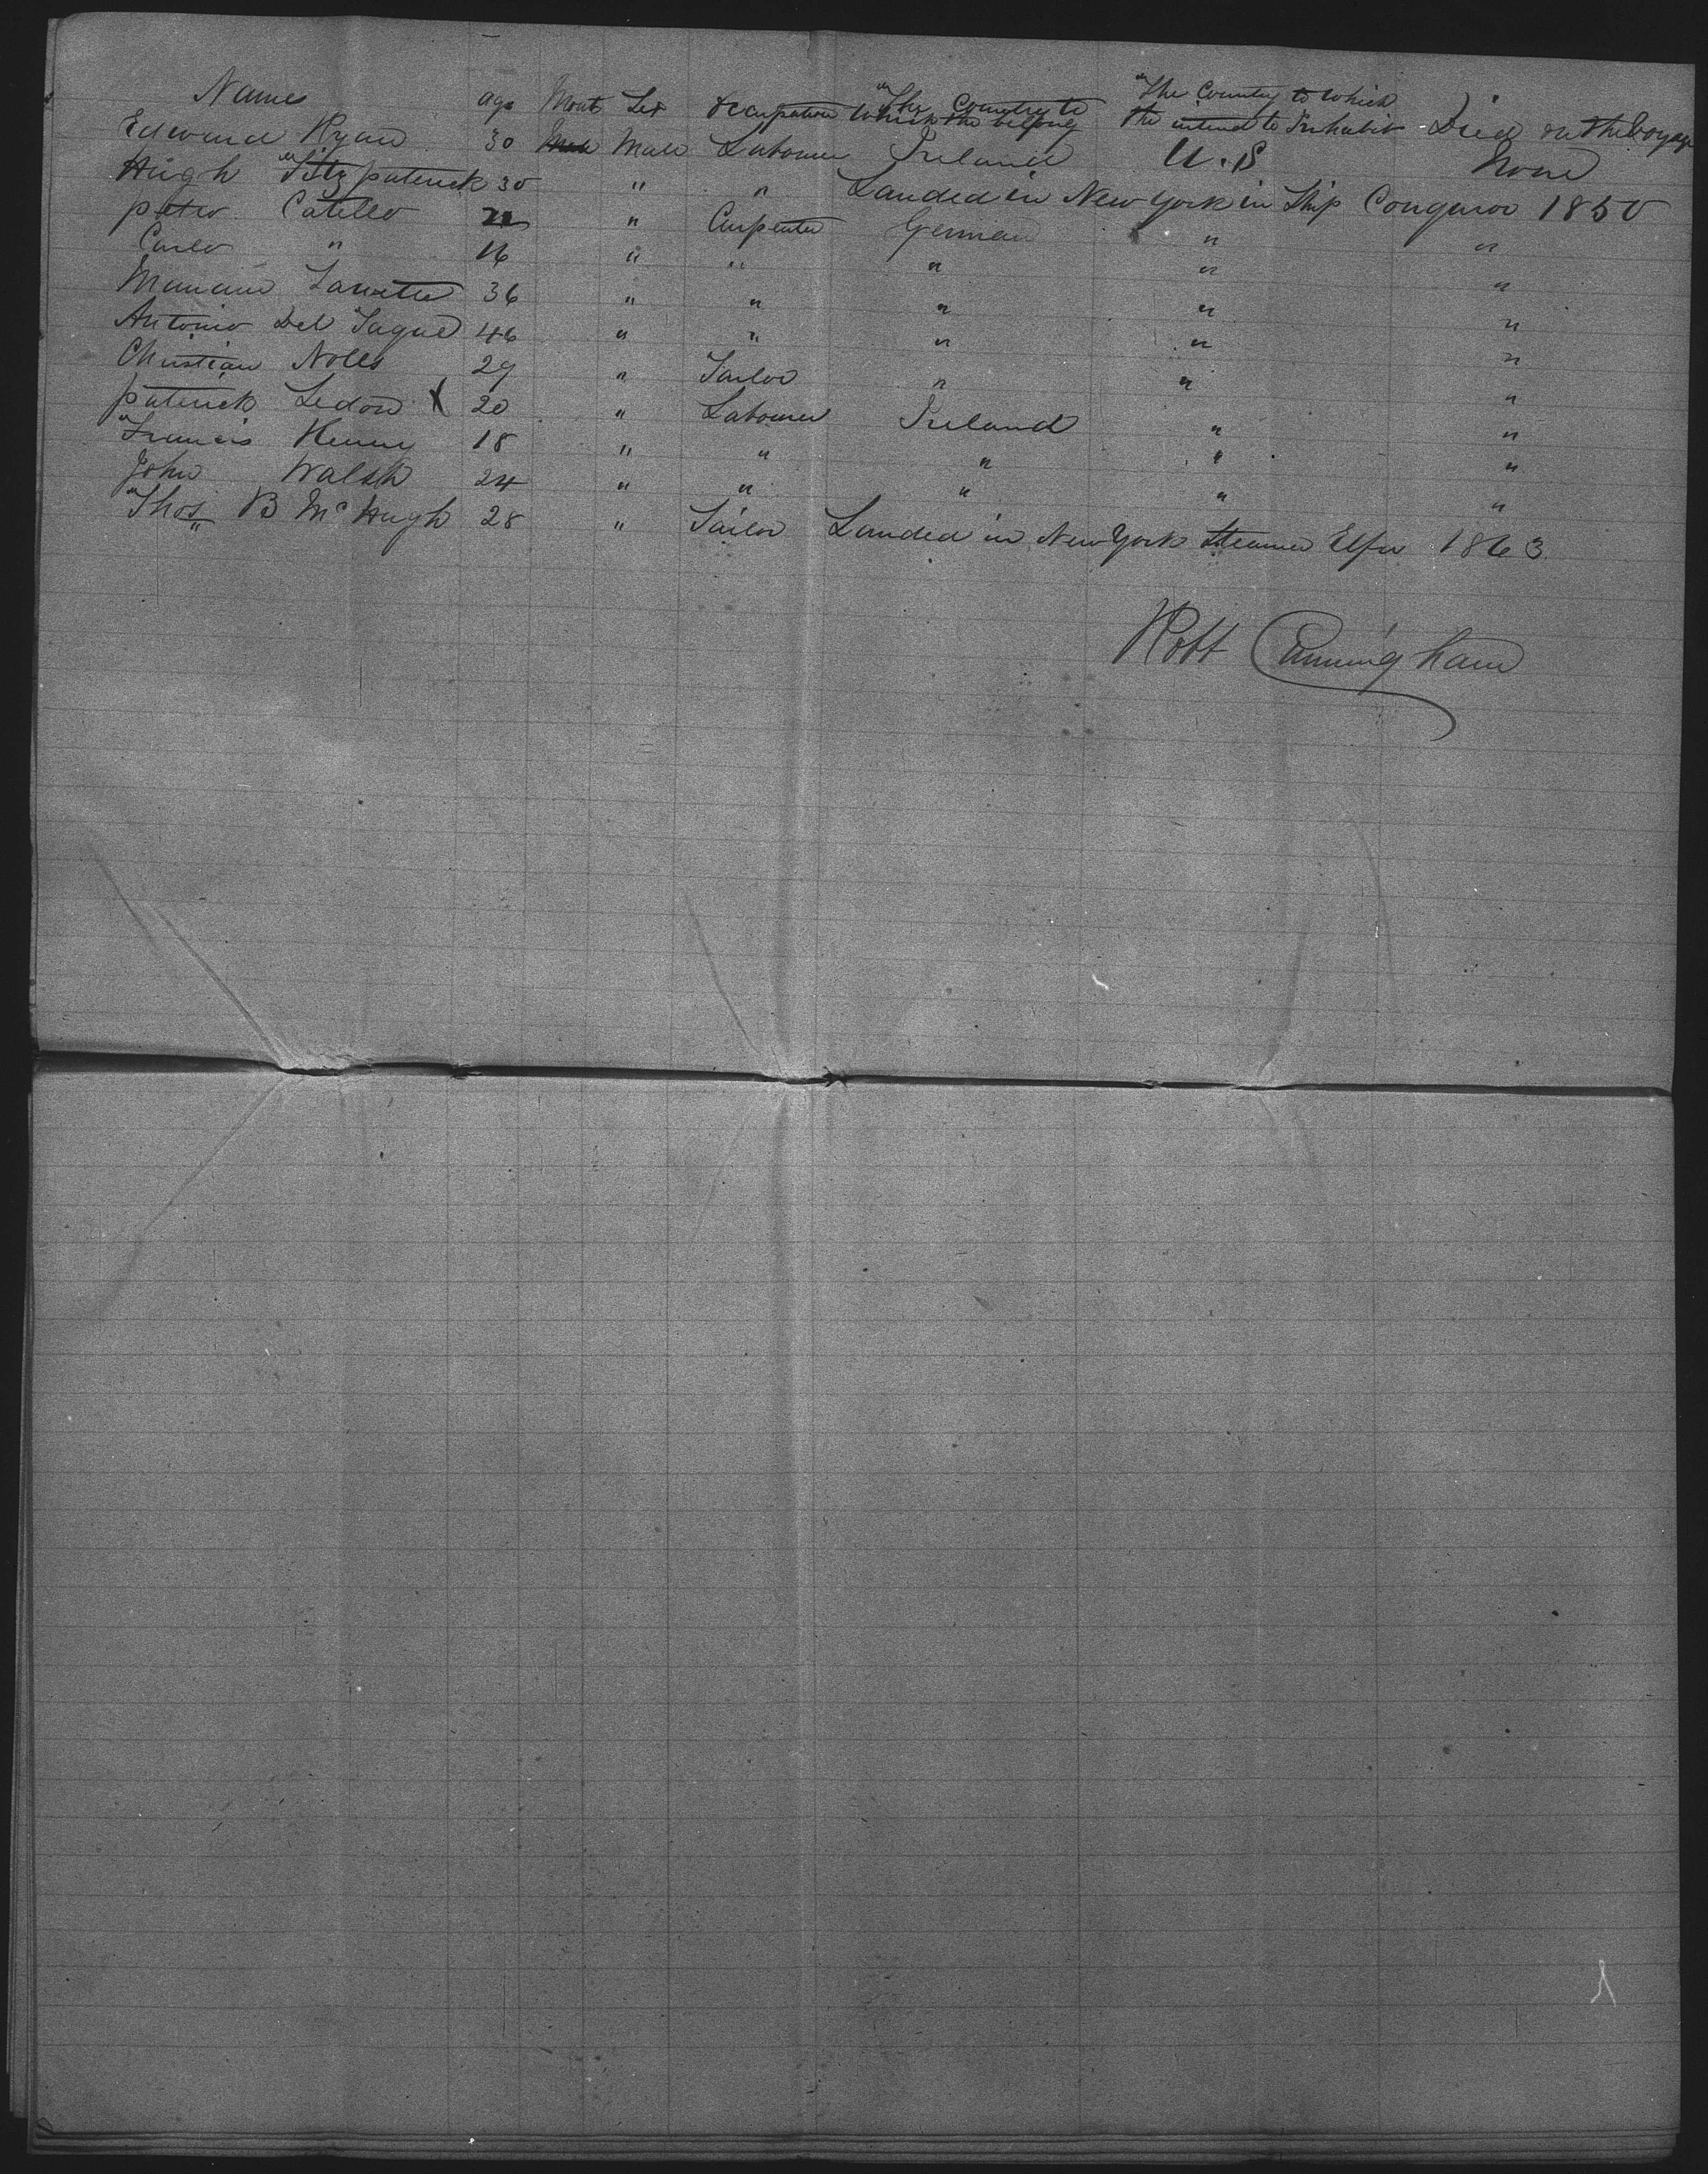 Names age Mont Sex Occupation The Country to which the belong The Country to which the intend to Inhabit Died on the Voyage
Edward Ryan 30 Male Labourer Ireland U.S None
Hugh Fitzpatrick 30 " " Landed in New York in Ship Congaroo 1850
pietro Catello 22 " Carpenter German " "
Carlo " 16 " " " " "
36 " " " " "
Antonio Del 46 " " " " "
Christian Nolls 29 " Tailor " " "
patrick Ledon X 20 " Labourer Ireland " "
Francis Kenny 18 " " " " "
John Walsh 24 " " " " "
Thos B McHugh 28 " Tailor Landed in New York Steamer 1863
Robt Cunningham